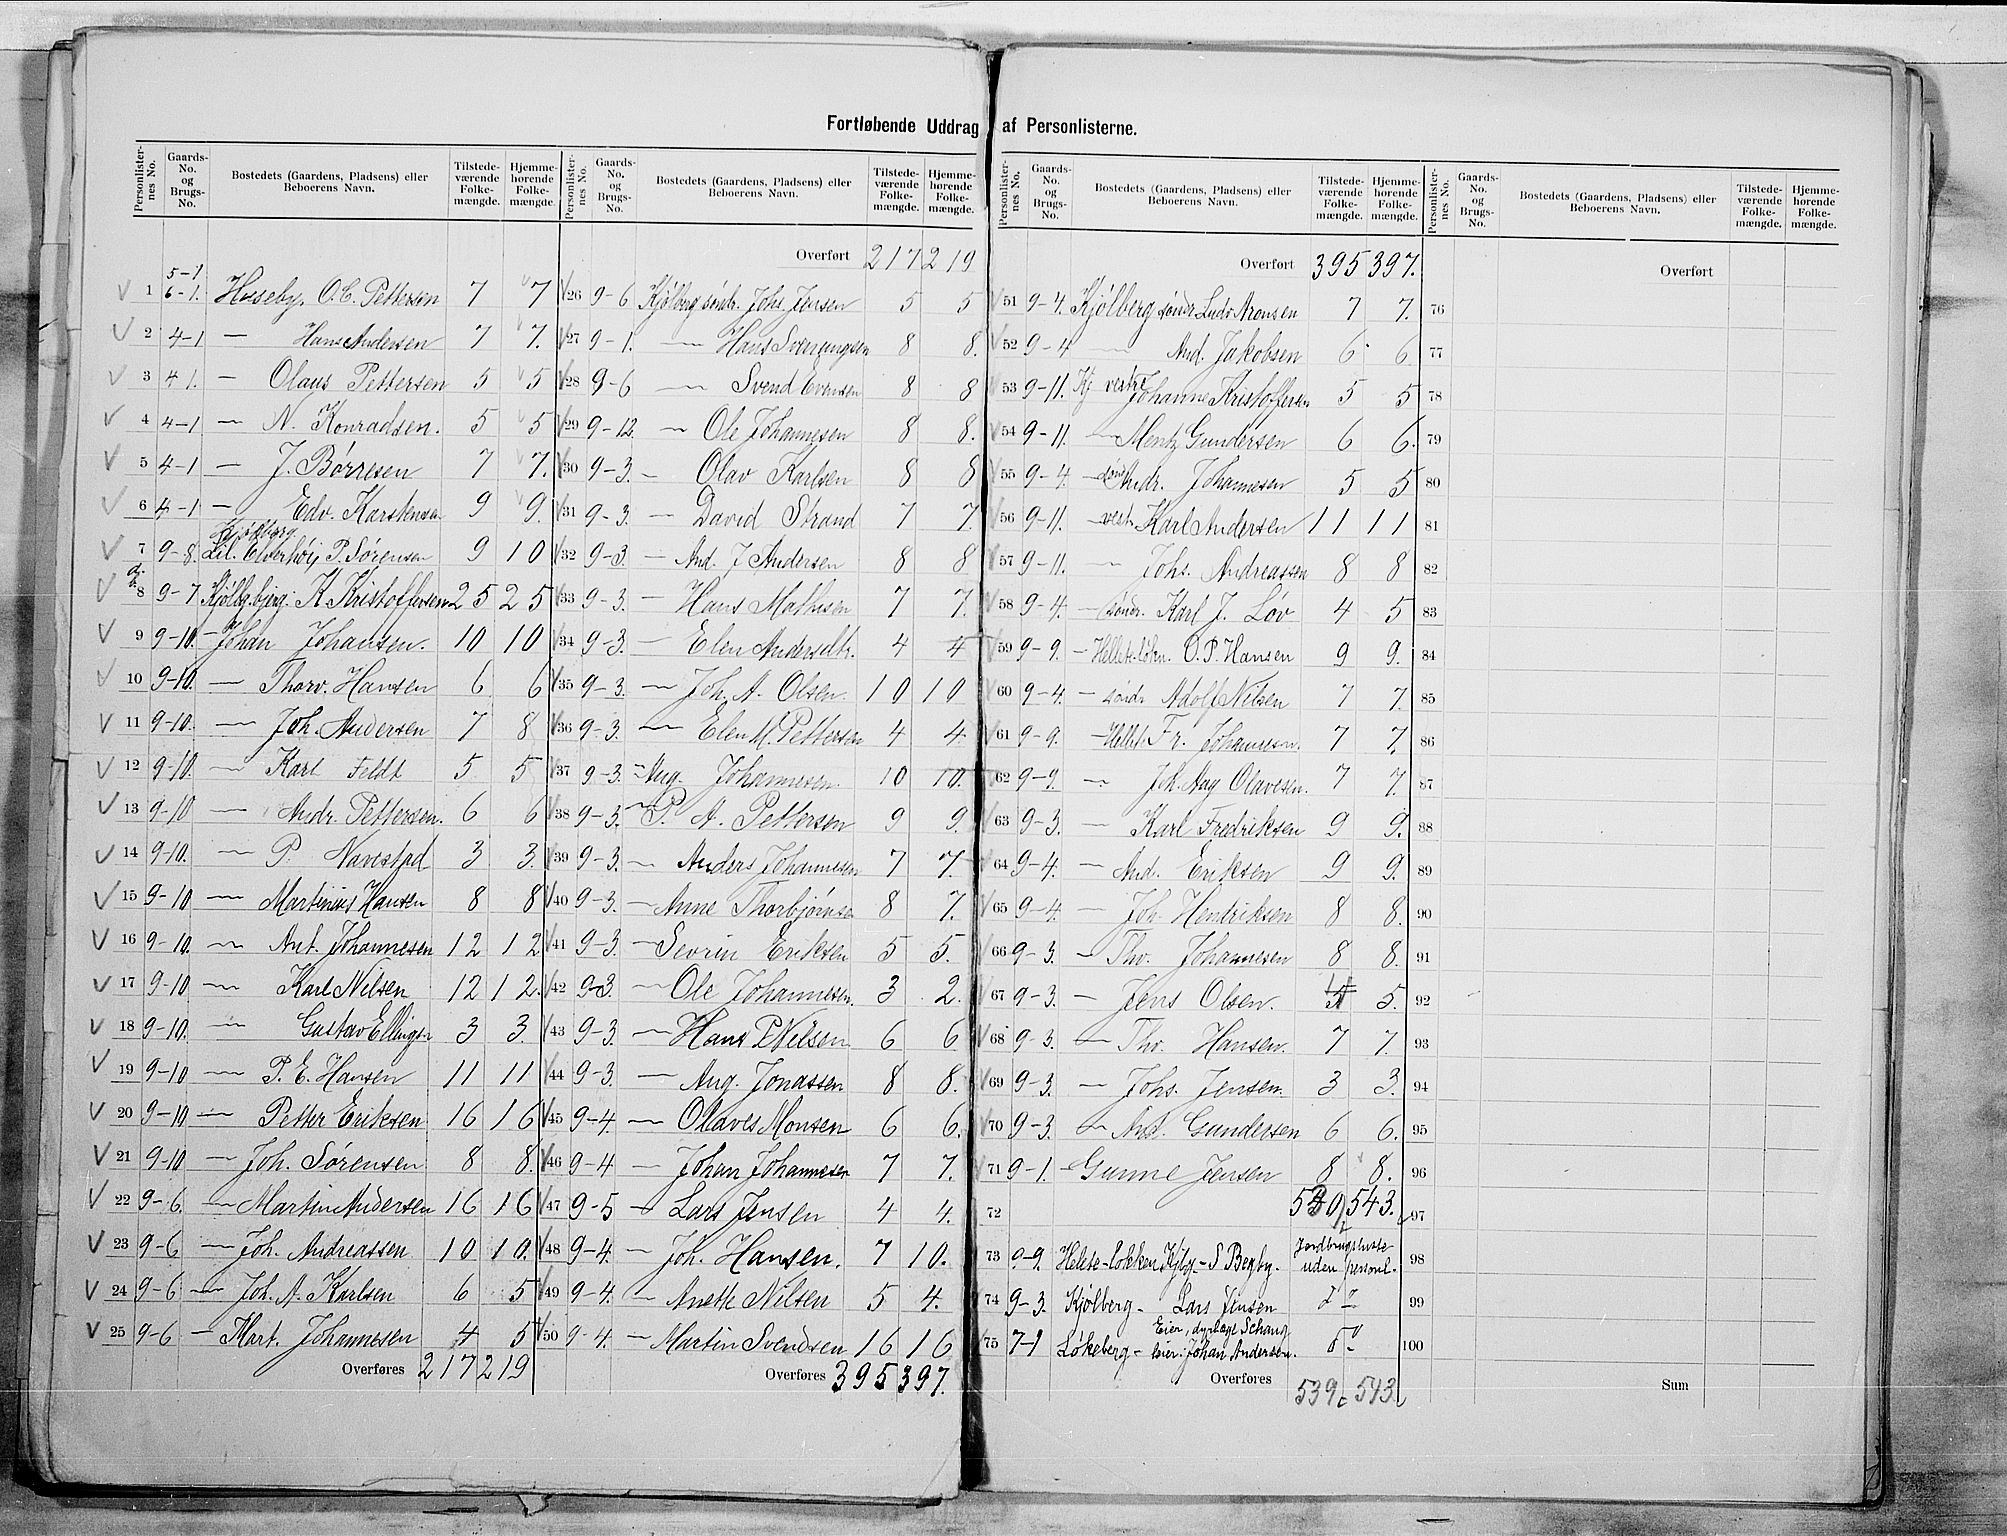 Fortløbende Uddrag af Personlisterne.
Personlisternes No. | Gaards-No. og Brugs-No. | Bostedets (Gaardens, Pladsens) eller Beboerens Navn. | Tilstedeværende Folkemængde. | Hjemmehørende Folkemængde.
1 5-1 6-1. Huseby, O.C. Pettersen 7 7
2 4-1 — Hans Andersen 7 7.
3 4-1. — Olaus Pettersen 5 5
4 4-1 — N. Konradsen. 5 5
5 4-1 — J. Børresen 7 7.
6 4-1 — Edv. Karstensen 9 9.
7 9-8. Kjølberg Lil. Elverhöi P. Sørensen 9 10
8 9-7 Kjølbgbjerg. K. Kristoffersen 25 25
9 9-10. — Johan Johansen. 10 10
10 9-10. — Thorv. Hansen 6 6
11 9-10. — Joh. Andersen 7 8
12 9-10. — Karl Feldt 5 5
13 9-10 — Andr. Pettersen. 6 6
14 9-10. — P. Navestad 3 3.
15 9-10 — Martinius Hansen 8 8
16 9-10. — Ant. Johannesen 12 12
17 9-10 — Karl Nilsen 12 12.
18 9-10. — Gustav Ellingsn 3 3.
19 9-10 — P. E. Hansen 11 11
20 9-10 — Petter Eriksen 16 16
21 9-10 — Joh. Sørensen 8 8.
22 9-6. — Martin Andersen 16 16
23 9-6 — Joh. Andreassen 10 10.
24 9-6 — Joh. A. Karlsen 6 5
25 9-6 — Mart. Johannesen 4 5
Overføres 217 219
Personlisternes No. | Gaards-No. og Brugs-No. | Bostedets (Gaardens, Pladsens) eller Beboerens Navn. | Tilstedeværende Folkemængde. | Hjemmehørende Folkemængde.
Overført 217 219
26 9-6 Kjølberg söndr. Johs. Jensen 5 5
27 9-1. — Hans Sverungsen 8 8.
28 9-6 — Svend Evensen 8 8
29 9-12. — Ole Johannesen 8 8.
30 9-3. — Olav Karlsen 8 8
31 9-3. — David Strand 7 7.
32 9-3 — And. J Andersen 8 8
33 9-3. — Hans Mathisen 7 7.
34 9-3. — Elen Andersdtr. 4 4
35 9-3. — Joh. A. Olsen. 10 10
36 9-3. — Elen M. Pettersen 4 4.
37 9-3. — Aug. Johannesen. 10 10.
38 9-3. — P. A. Pettersen 9 9.
39 9-3. — Anders Johannesen 7 7.
40 9-3. — Anne Thorbjörnse 8 7.
41 9-3. — Sevrin Eriksen 5 5.
42 9-3. — Ole Johannesen. 3 2.
43 9-3. — Hans P Nilsen 6 6.
44 9-3. — Aug. Jonassen 8 8.
45 9-4. — Olaves Monsen 6 6.
46 9-4 — Johan Johannesen 7 7.
47 9-5 — Lars Jensen 4 4.
48 9-4. — Joh. Hansen. 7 10.
49 9-4. — Anette Nilsen 5 4.
50 9-4. — Martin Svendsen 16 16
Overføres 395 397.
Personlisternes No. | Gaards-No. og Brugs-No. | Bostedets (Gaardens, Pladsens) eller Beboerens Navn. | Tilstedeværende Folkemængde. | Hjemmehørende Folkemængde.
Overført 395 397.
51 9-4. Kjølberg söndr Ludv Aronsen 7 7.
52 9-4 — And. Jakobsen 6 6.
53 9-11. Kj. vestre Johanne Kristoffersen 5 5
54 9-11. — Mentz Gundersen 6 6.
55 9-4. — sönd Andr. Johannesen 5 5
56 9-11. — vest. Karl Andersen 11 11
57 9-11. — Johs. Andreassen 8 8
58 9-4. — söndr. Karl J. Löv 4 5
59 9-9. — Hellete.løkn. O.P. Hansen 9 9.
60 9-4. — söndr Adolf Nilsen 7 7.
61 9-9. — Hellet. Fr. Johansen. 7 7.
62 9-9. — Joh. Aug Olavesen. 7 7.
63 9-3. — Karl Fredriksen 9 9.
64 9-4. — And. Eriksen 9 9.
65 9-4. — Joh Hendriksen 8 8.
66 9-3. — Thv. Johannesen 8 8.
67 9-3. — Jens Olsen. 5.
68 9-3. — Thv. Hansen. 7 7.
69 9-3. — Johs. Jensen. 3 3.
70 9-3. — And. Gundersen 6 6.
71 9-1. — Gunne Jensen 8 8.
72 543.
73 9-9. Hellete-løkken Kjbg.-S Begby. Jordbrugsliste uden personl.
74 9-3. Kjölberg - Lars Jensen
75 7-1 Løkeberg - Eier, dyrlæge Schaug, leier: Johan Andersen.
Overføres 539 543.
Personlisternes No. | Gaards-No. og Brugs-No. | Bostedets (Gaardens, Pladsens) eller Beboerens Navn. | Tilstedeværende Folkemængde. | Hjemmehørende Folkemængde.
Overført
76
77
78
79
80
81
82
83
84
85
86
87
88
89
90
91
92
93
94
95
96
97
98
99
100
Sum